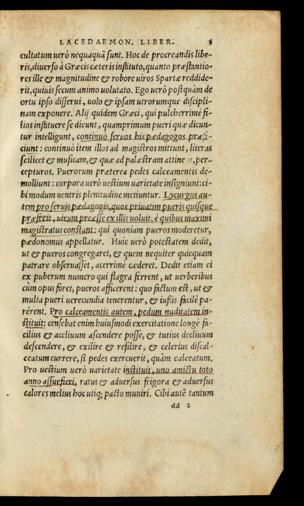 LACEDAEMON. LIBER.
cultatum uerò nequaquã sunt. Hoc de procreandis libe-
ris, diuerso à Græcis cæteris instituto, quanto præstantio-
res ille & magnitudine & robore uiros Spartæ reddide-
rit, quiuis secum animo uolutato. Ego uerò postquàm de
ortu ipso disserui, uolo & ipsam utrorumque discipli-
nam exponere. Alij quidem Græci, qui pulcherrime fi-
lios instituere se dicunt, quamprimum pueri quæ dicun-
tur intelligunt, continuò seruos his pædagogos præfi-
ciunt: continuò item illos ad magistros mittunt, literas
scilicet & musicam, & quæ ad palæstram attinent, per-
cepturos. Puerorum præterea pedes calceamentis de-
molliunt: corpora uerò uestium uarietate insigniunt: ci-
bi modum uentris plenitudine metiuntur. Lycurgus au-
tem pro seruis pædagogis, quos priuatim pueris quisque
præferit, uirum præesse ex illis uoluit, è quibus maximi
magistratus constant: qui quoniam pueros moderetur,
pædonomus appellatur. Huic uerò potestatem dedit,
ut & pueros congregaret, & quem nequiter quicquam
patrare obseruasset, acerrimè cæderet. Dedit etiam ei
ex puberum numero qui flagra ferrent, ut uerberibus
cùm opus foret, pueros afficerent: quo factum est, ut &
multa pueri uerecundia tenerentur, & iussis facilè pa-
rêrent. Pro calceamentis autem, pedum nuditatem in-
stituit: censebat enim huiusmodi exercitatione longè fa-
cilius & accliuum ascendere posse, & tutius decliuum
descendere, & exilire & resilire, & celerius discal-
ceatum currere, si pedes exercuerit, quàm calceatum.
Pro uestium uerò uarietate instituit, uno amictu toto
anno assuefieri, ratus & aduersus frigora & aduersus
calores melius hoc utique pacto muniri. Cibi autẽ tantum
dd 2